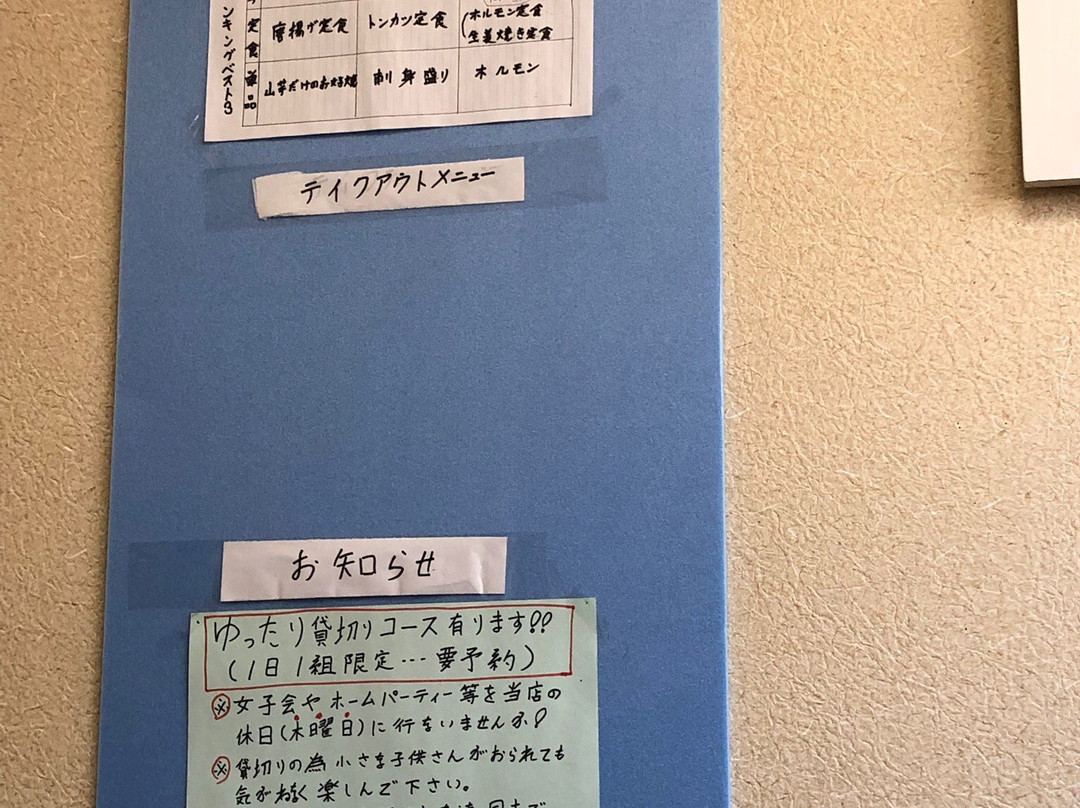 ンキングベスト3
定食
唐揚げ定食
トンカツ定食
(ホルモン定食
生姜焼き定食
単品
山芋だけのお好焼
刺身盛り
ホルモン
テイクアウトメニュー
お知らせ
ゆったり貸切りコース有ります!!
(1日1組限定…要予約)
※女子会やホームパーティー等を当店の
休日(木曜日)に行ないませんか!
※貸切りの為小さな子供さんがおられても
気がねなく楽しんで下さい。